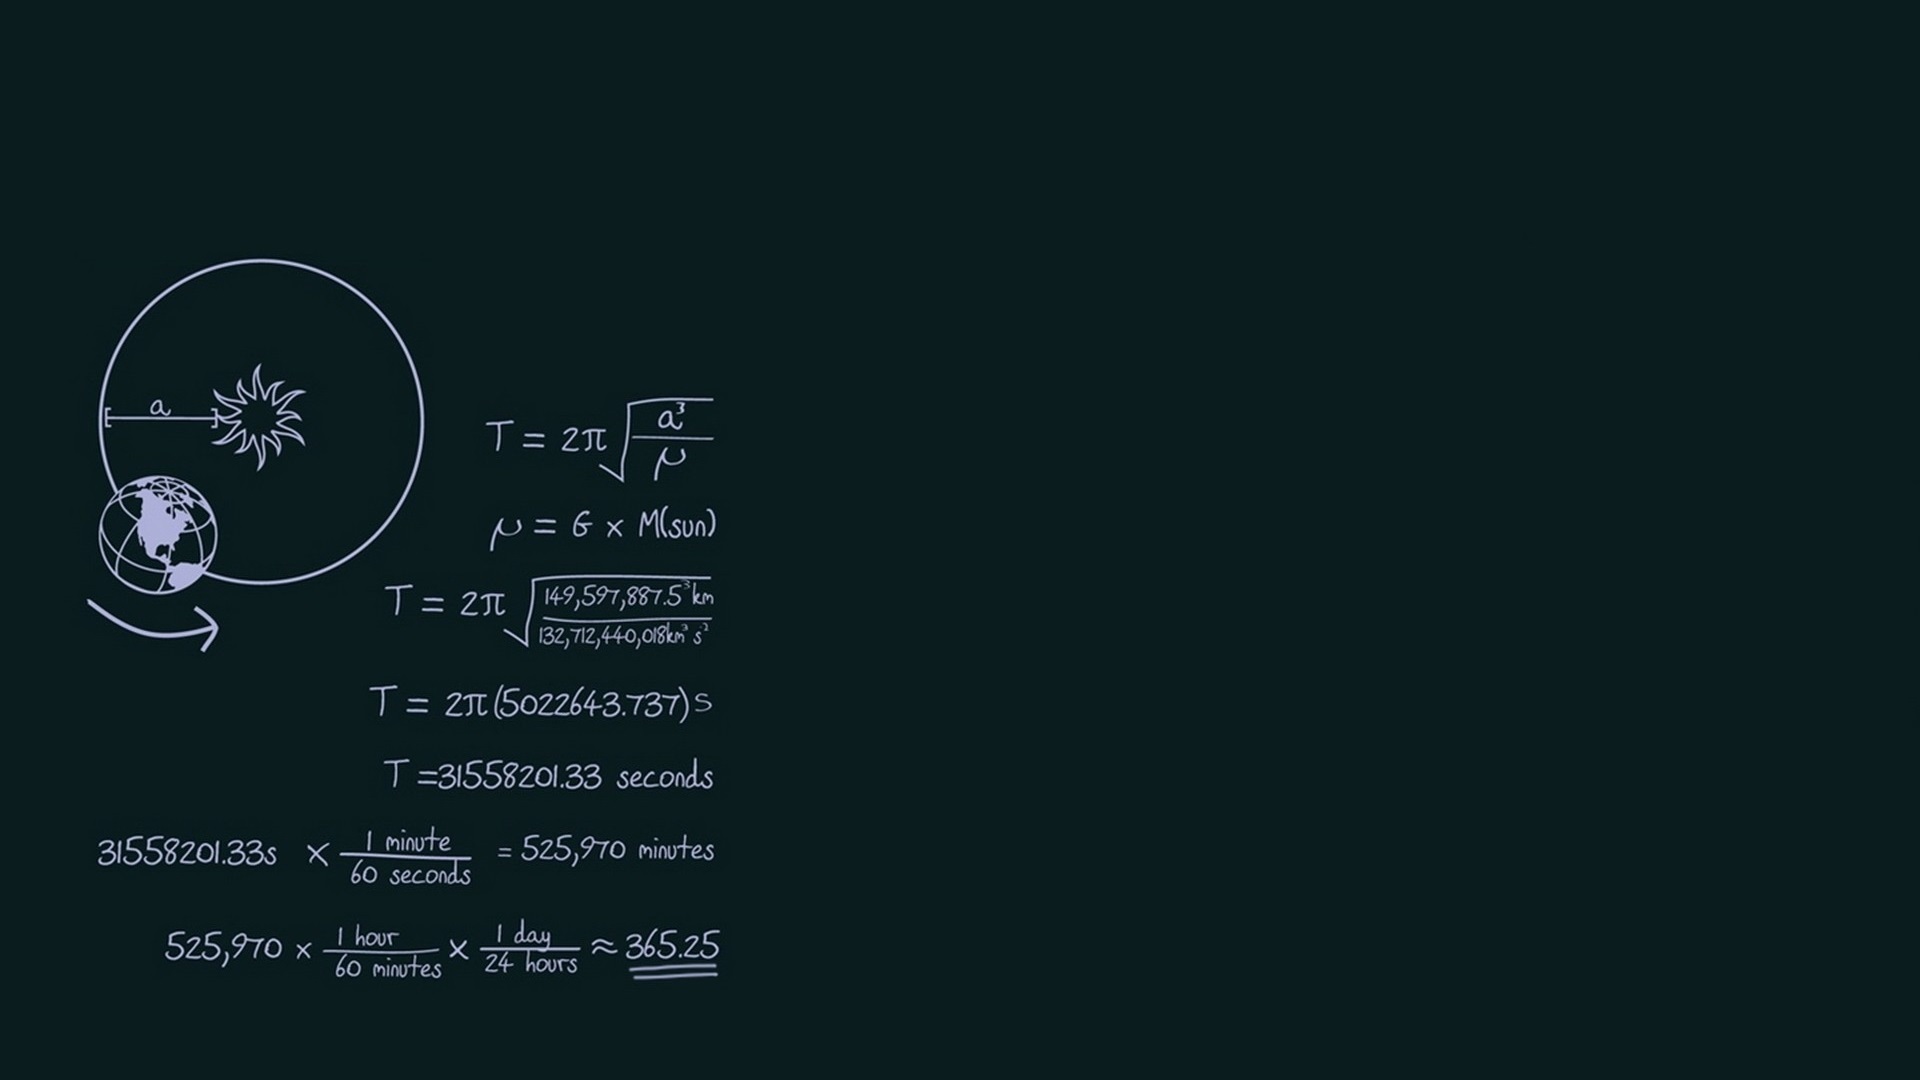 a
T = 2π√(a³/μ)
μ = G x M(sun)
T = 2π√(149,597,887.5³km/132,712,440,018km³ s²)
T = 2π(5022643.737)s
T =31558201.33 seconds
31558201.33s × 1 minute/60 seconds = 525,970 minutes
525,970 × 1 hour/60 minutes × 1 day/24 hours ≈ 365.25